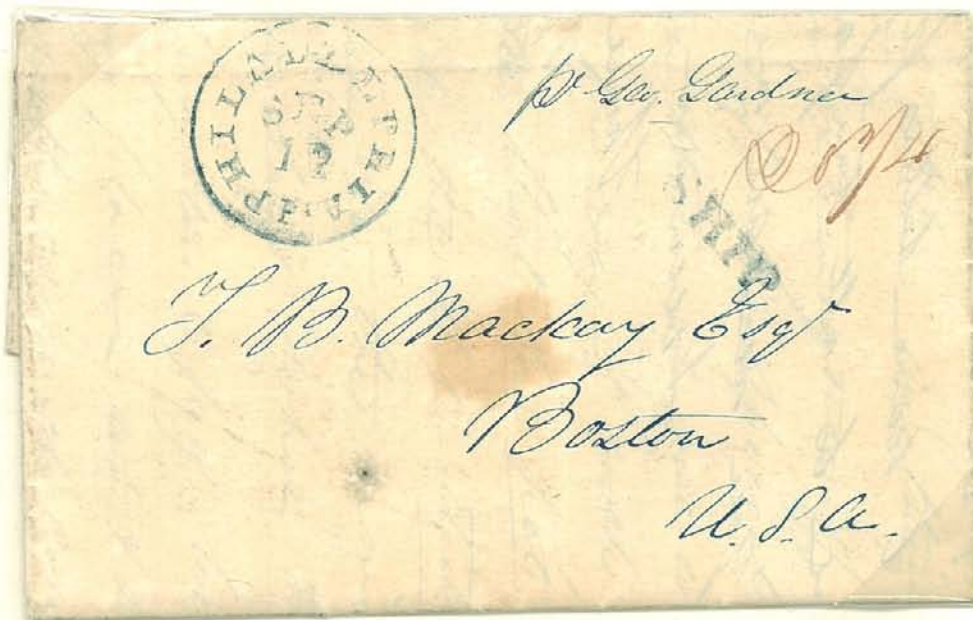 PHILADELPHIA Pa.
SEP
pr Geo. Gardner
SHIP
T. B. Mackay Esqr
Boston
U.S.A.